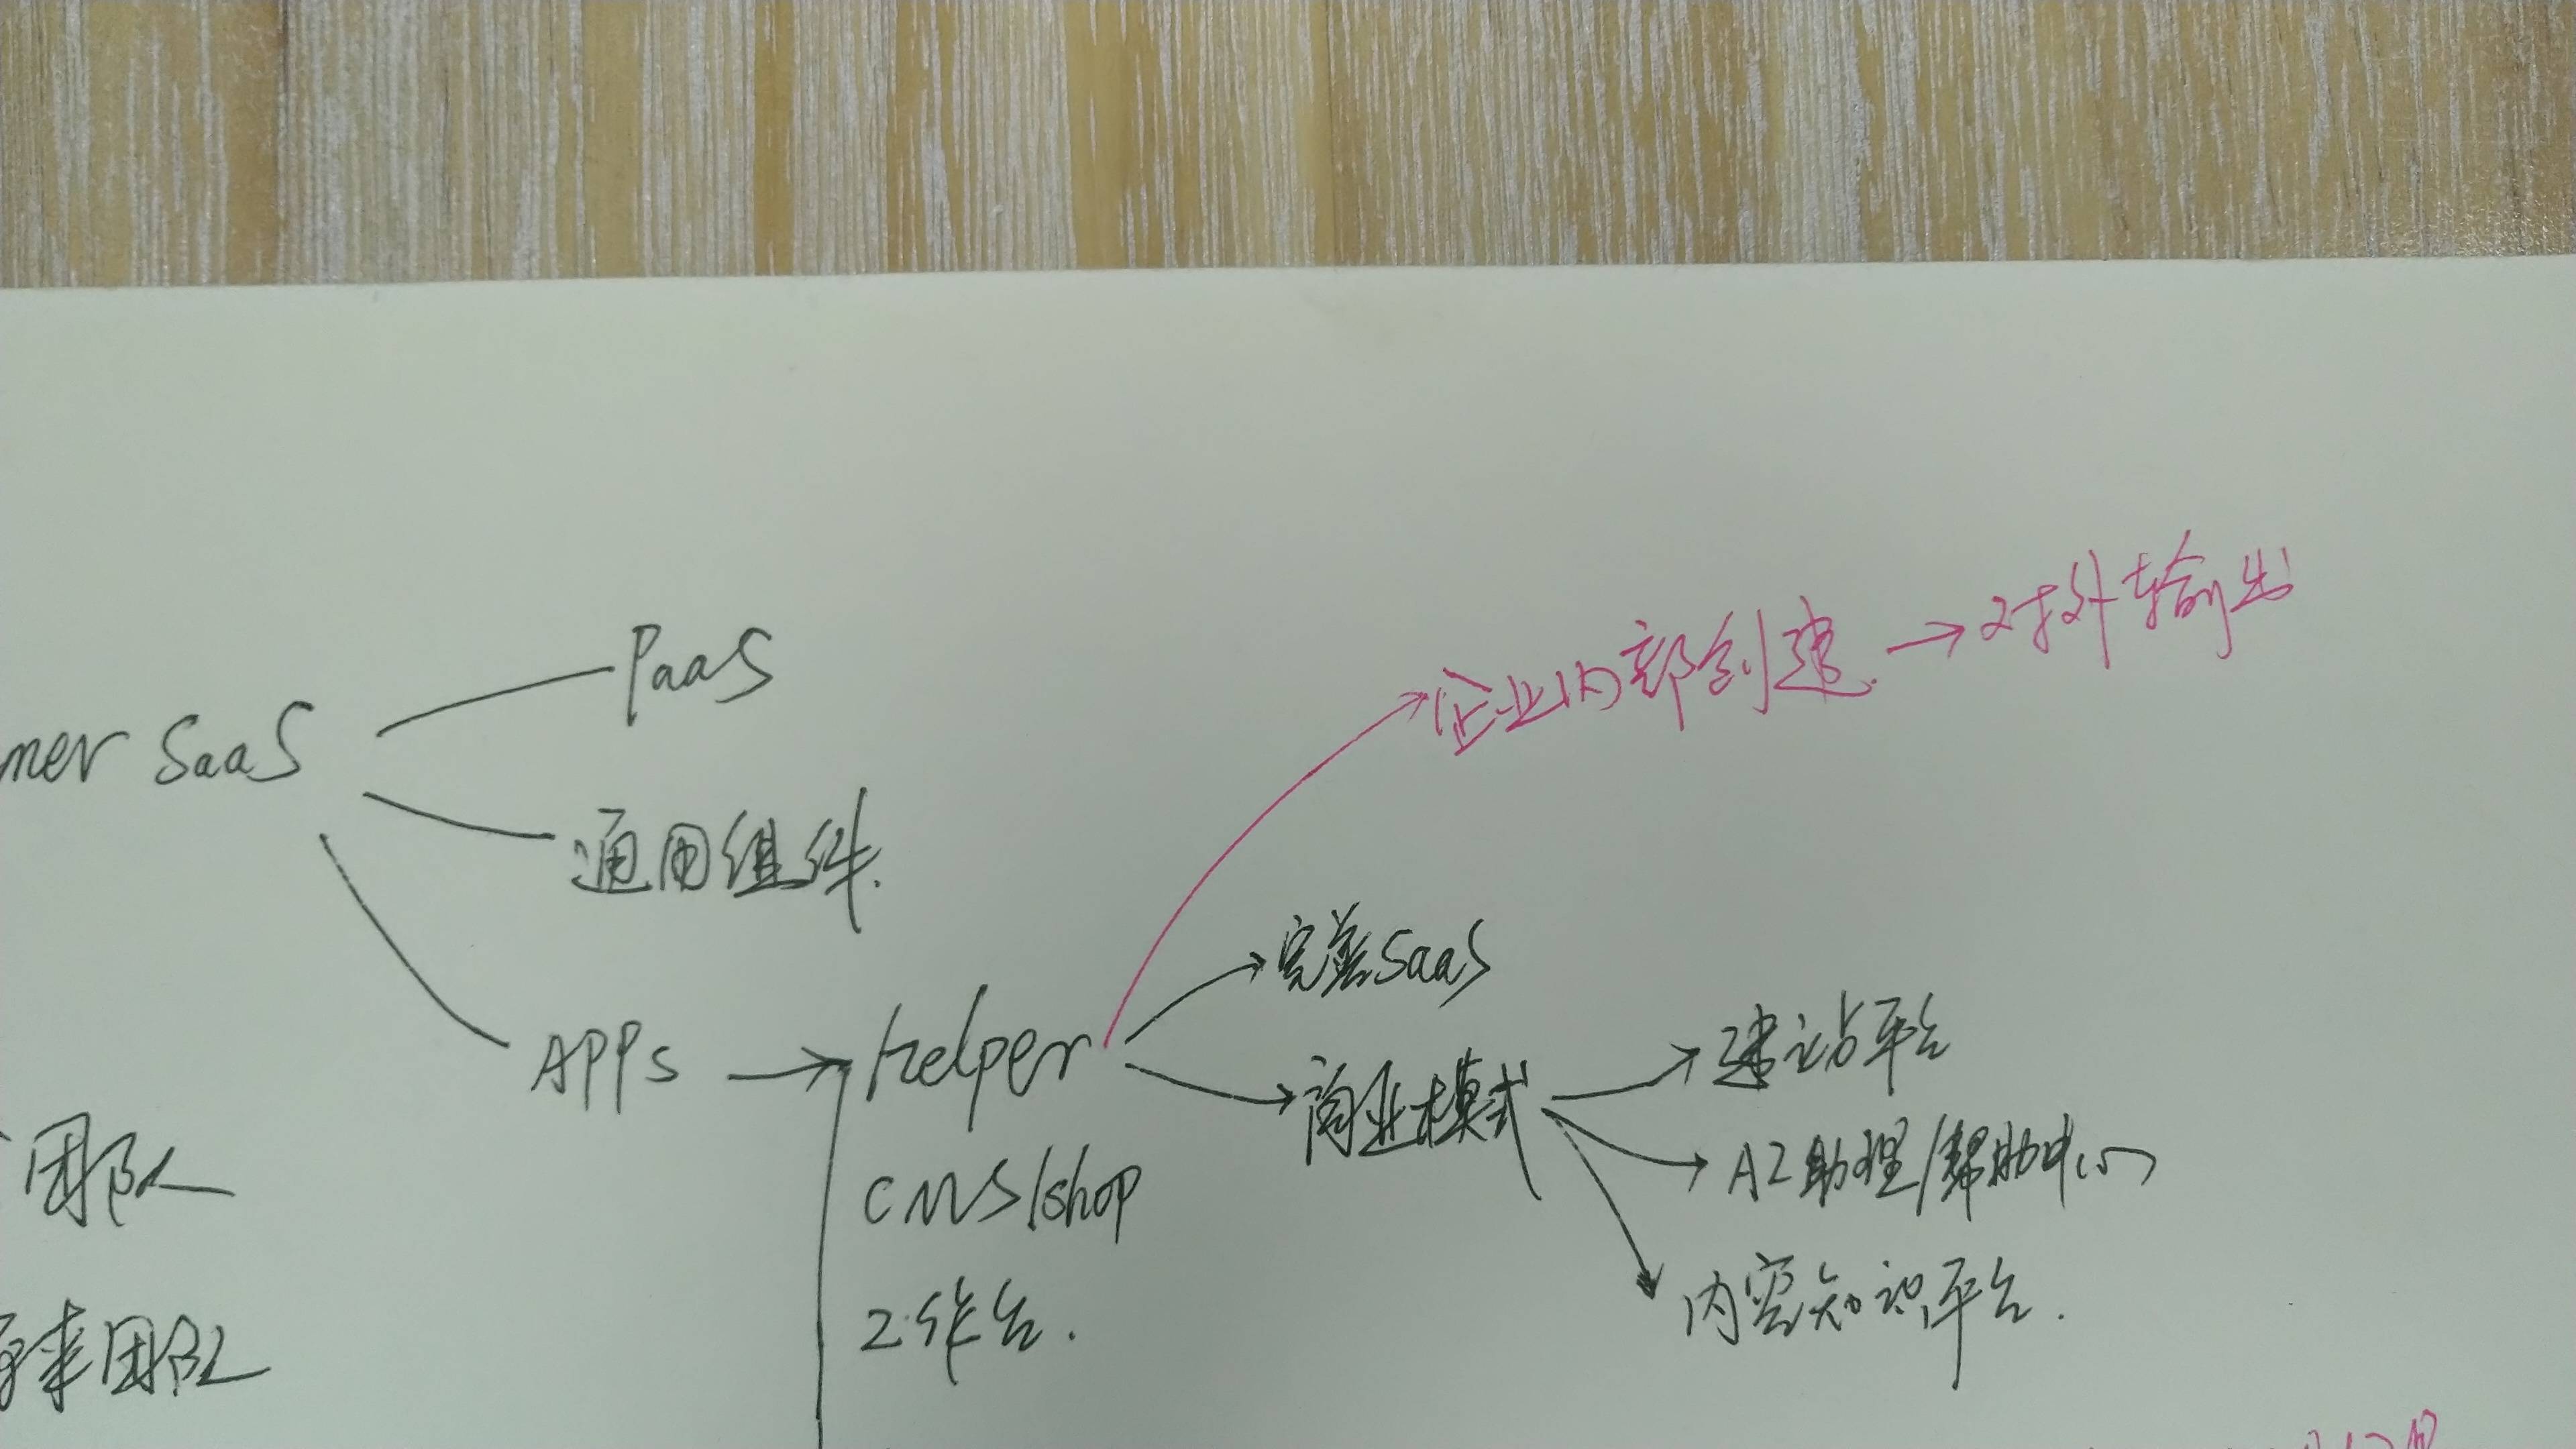 企业内部创建 → 对外输出
PaaS
mer SaaS
通用组件.
完善SaaS
APPs → Helper
商业模式
建站平台
AI助理/帮助中心
CMS/shop
团队
内容知识平台.
工作台.
团队